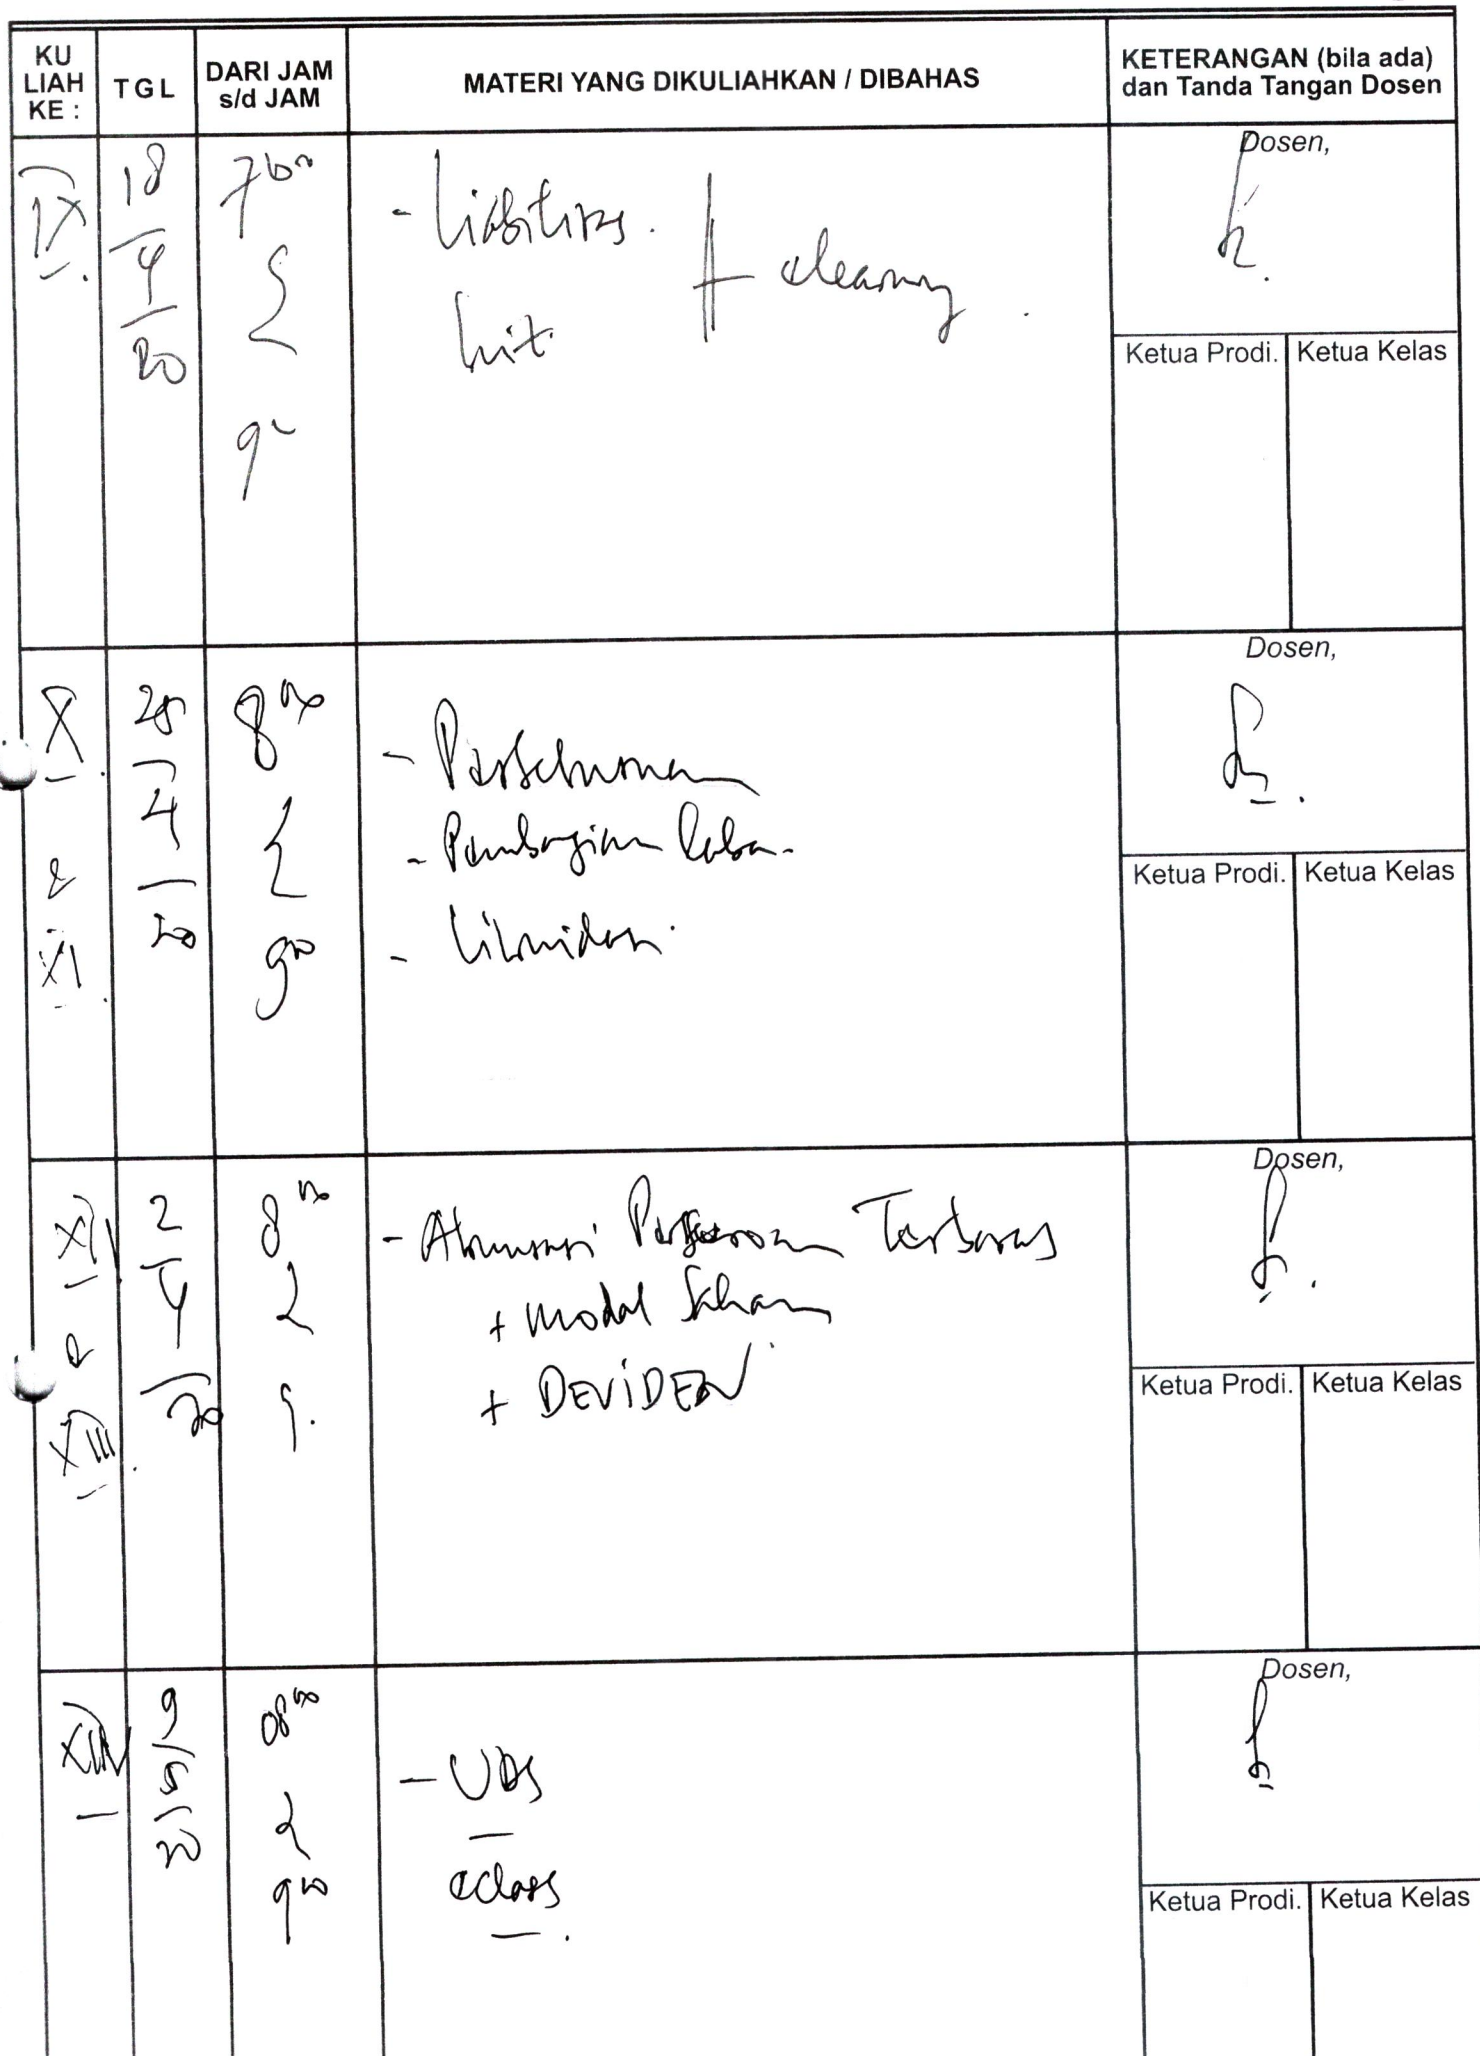 KU LIAH KE :
TGL
DARI JAM s/d JAM
MATERI YANG DIKULIAHKAN / DIBAHAS
KETERANGAN (bila ada) dan Tanda Tangan Dosen
IX
18
4
20
- Liabilitas.
Dosen,
Ketua Prodi. Ketua Kelas
X & XI
25
4
20
8 00
9 00
- Persekutuan
- Pembagian Laba.
- Likuidasi
Dosen,
Ketua Prodi. Ketua Kelas
XII & XIII
2
4
20
8 00
9.
- Akuntansi Perseroan Terbatas
+ Modal Saham
+ DEVIDEN
Dosen,
Ketua Prodi. Ketua Kelas
9
5
20
08 00
9 00
Dosen,
Ketua Prodi. Ketua Kelas